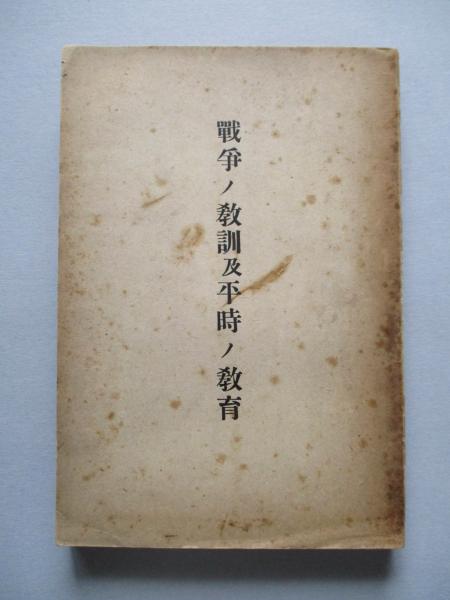 戰爭ノ教訓及平時ノ教育